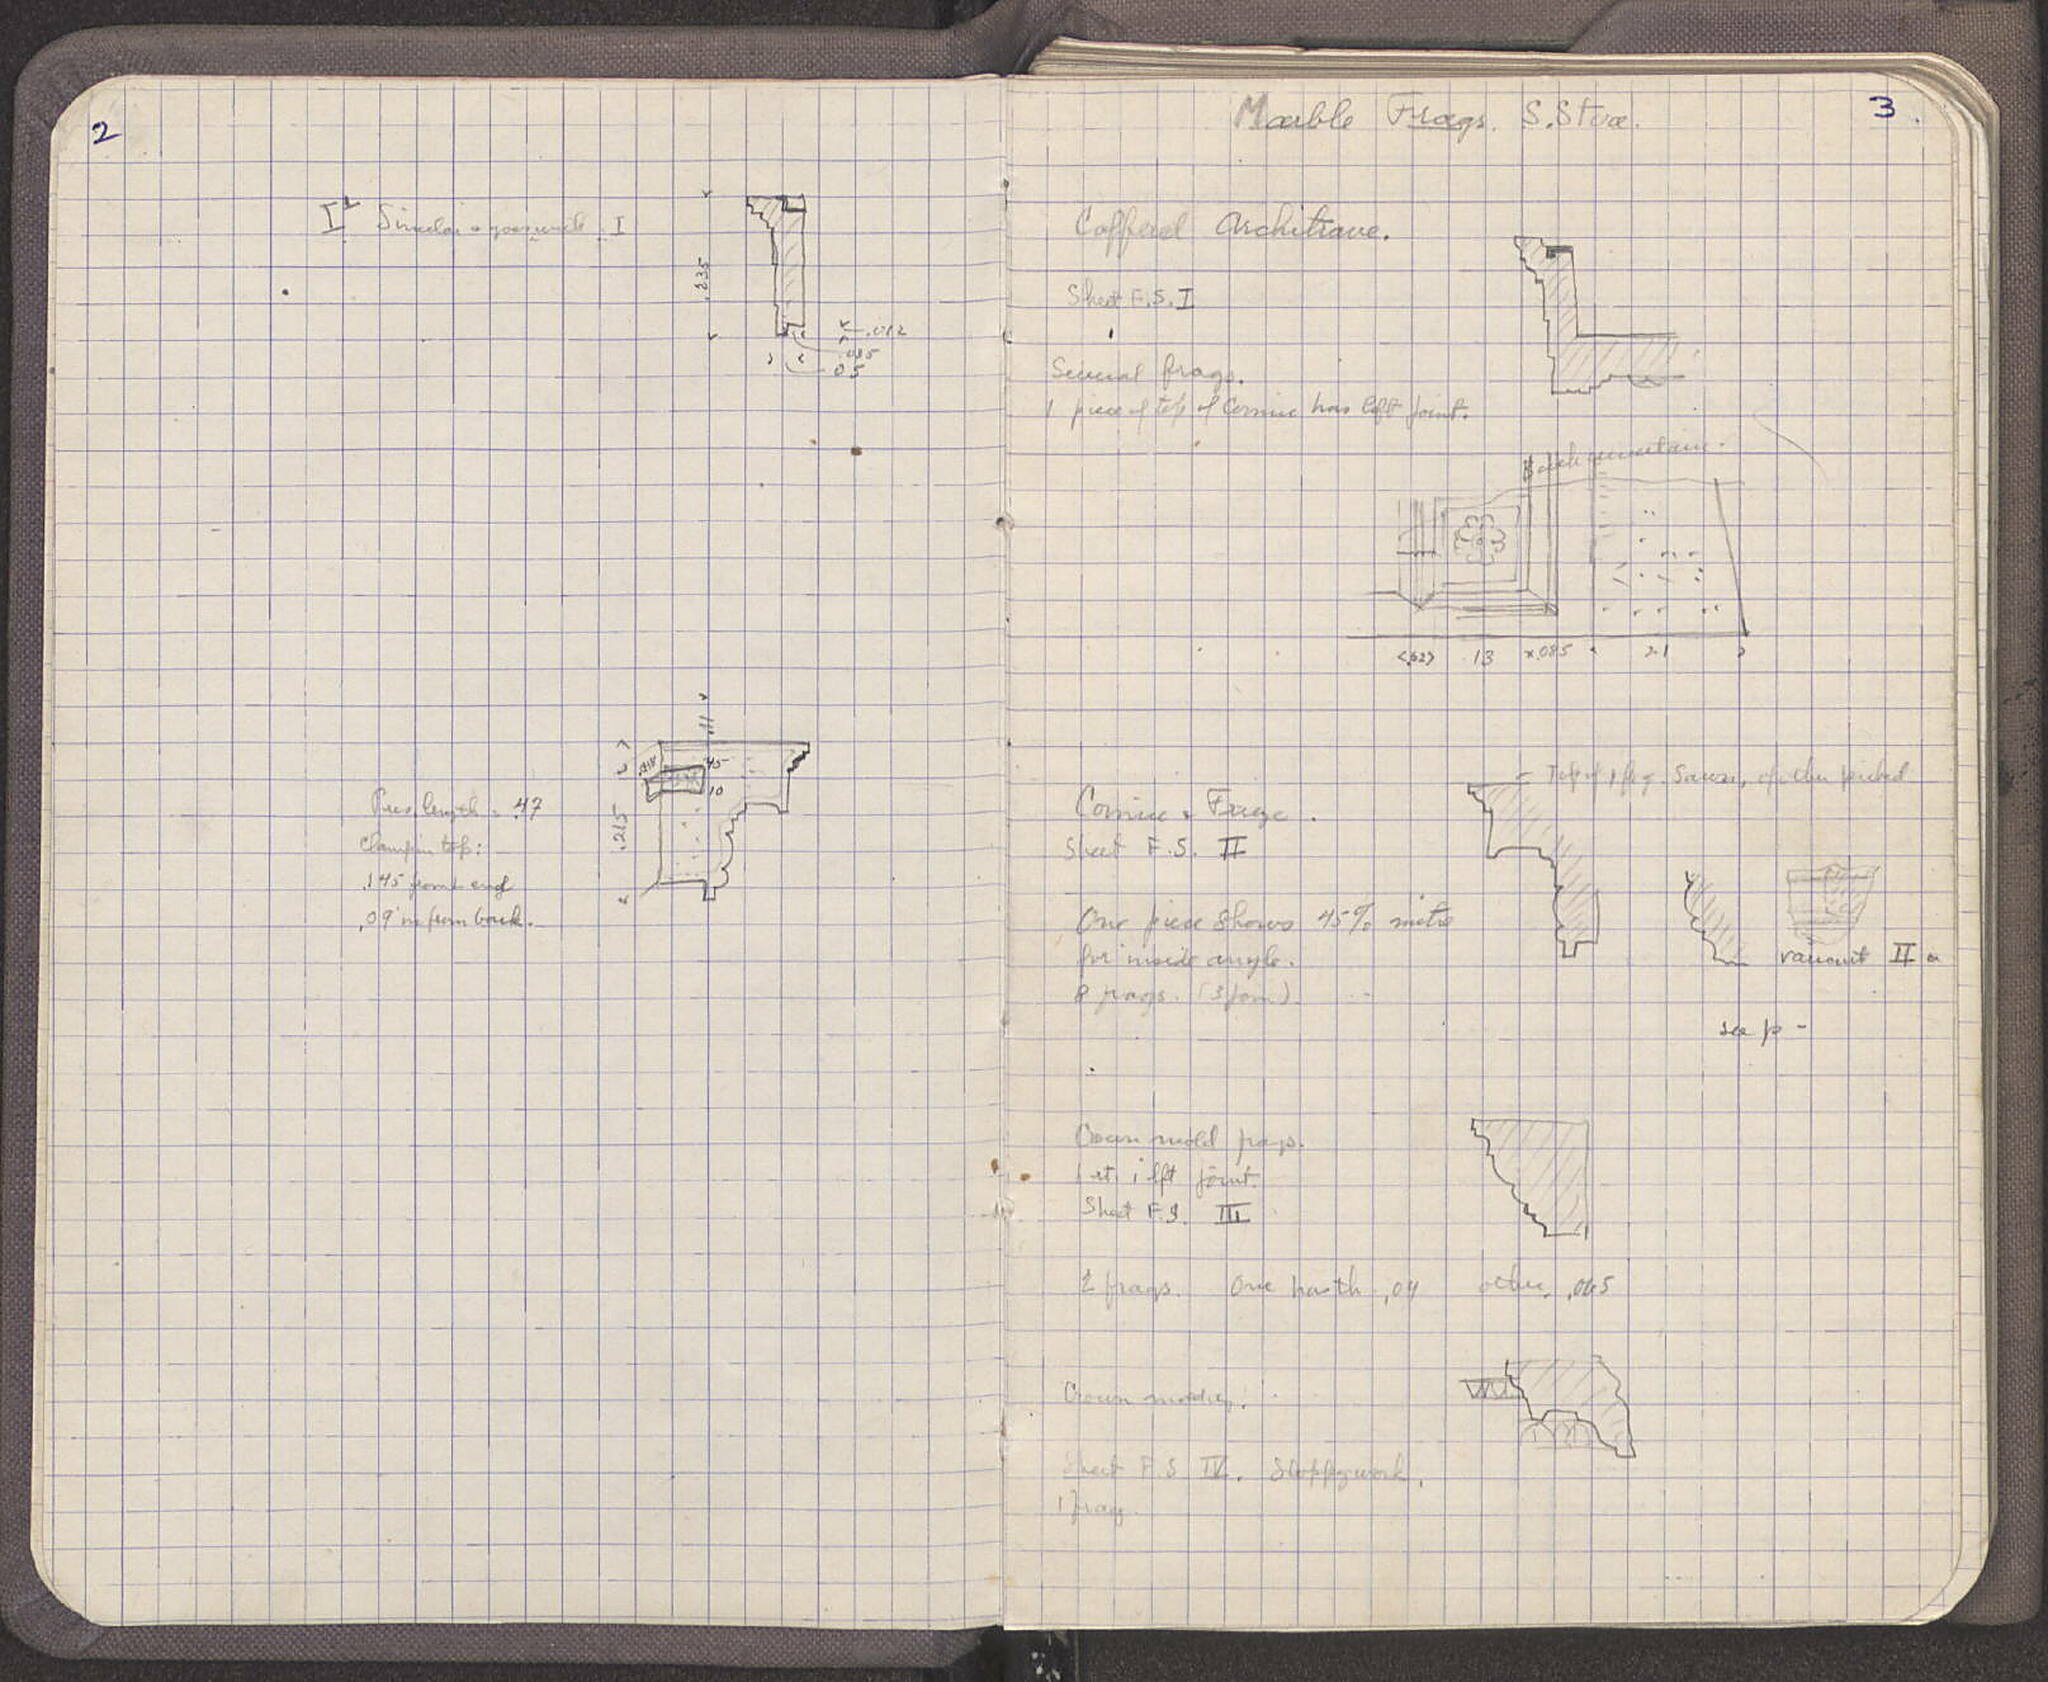 2
I² Similar + goes with I
.235
.012
.035
.05
.11
45
10
.215
Pres. length = .47
Clamp in top:
.145 from end
.09 in from back.
3.
Marble Frags. S. Stoa.
Coffered Architrave.
Sheet F.S. I
Several frags.
1 piece of top of Cornice has left joint.
Back uncertain.
13 .085 21
Top of 1 frg. Sawn, of other picked
Cornice & Frieze.
Sheet F.S. II
One piece shows 45° mitre
for inside angle.
8 frags. (3 join)
variant II a
see p -
Crown mold frags.
1 rt. 1 left joint.
Sheet F.S. III
2 frags. One has th. .04 other, .065
Crown moldg.
Sheet F.S. IV. Sloppy work.
1 frag.